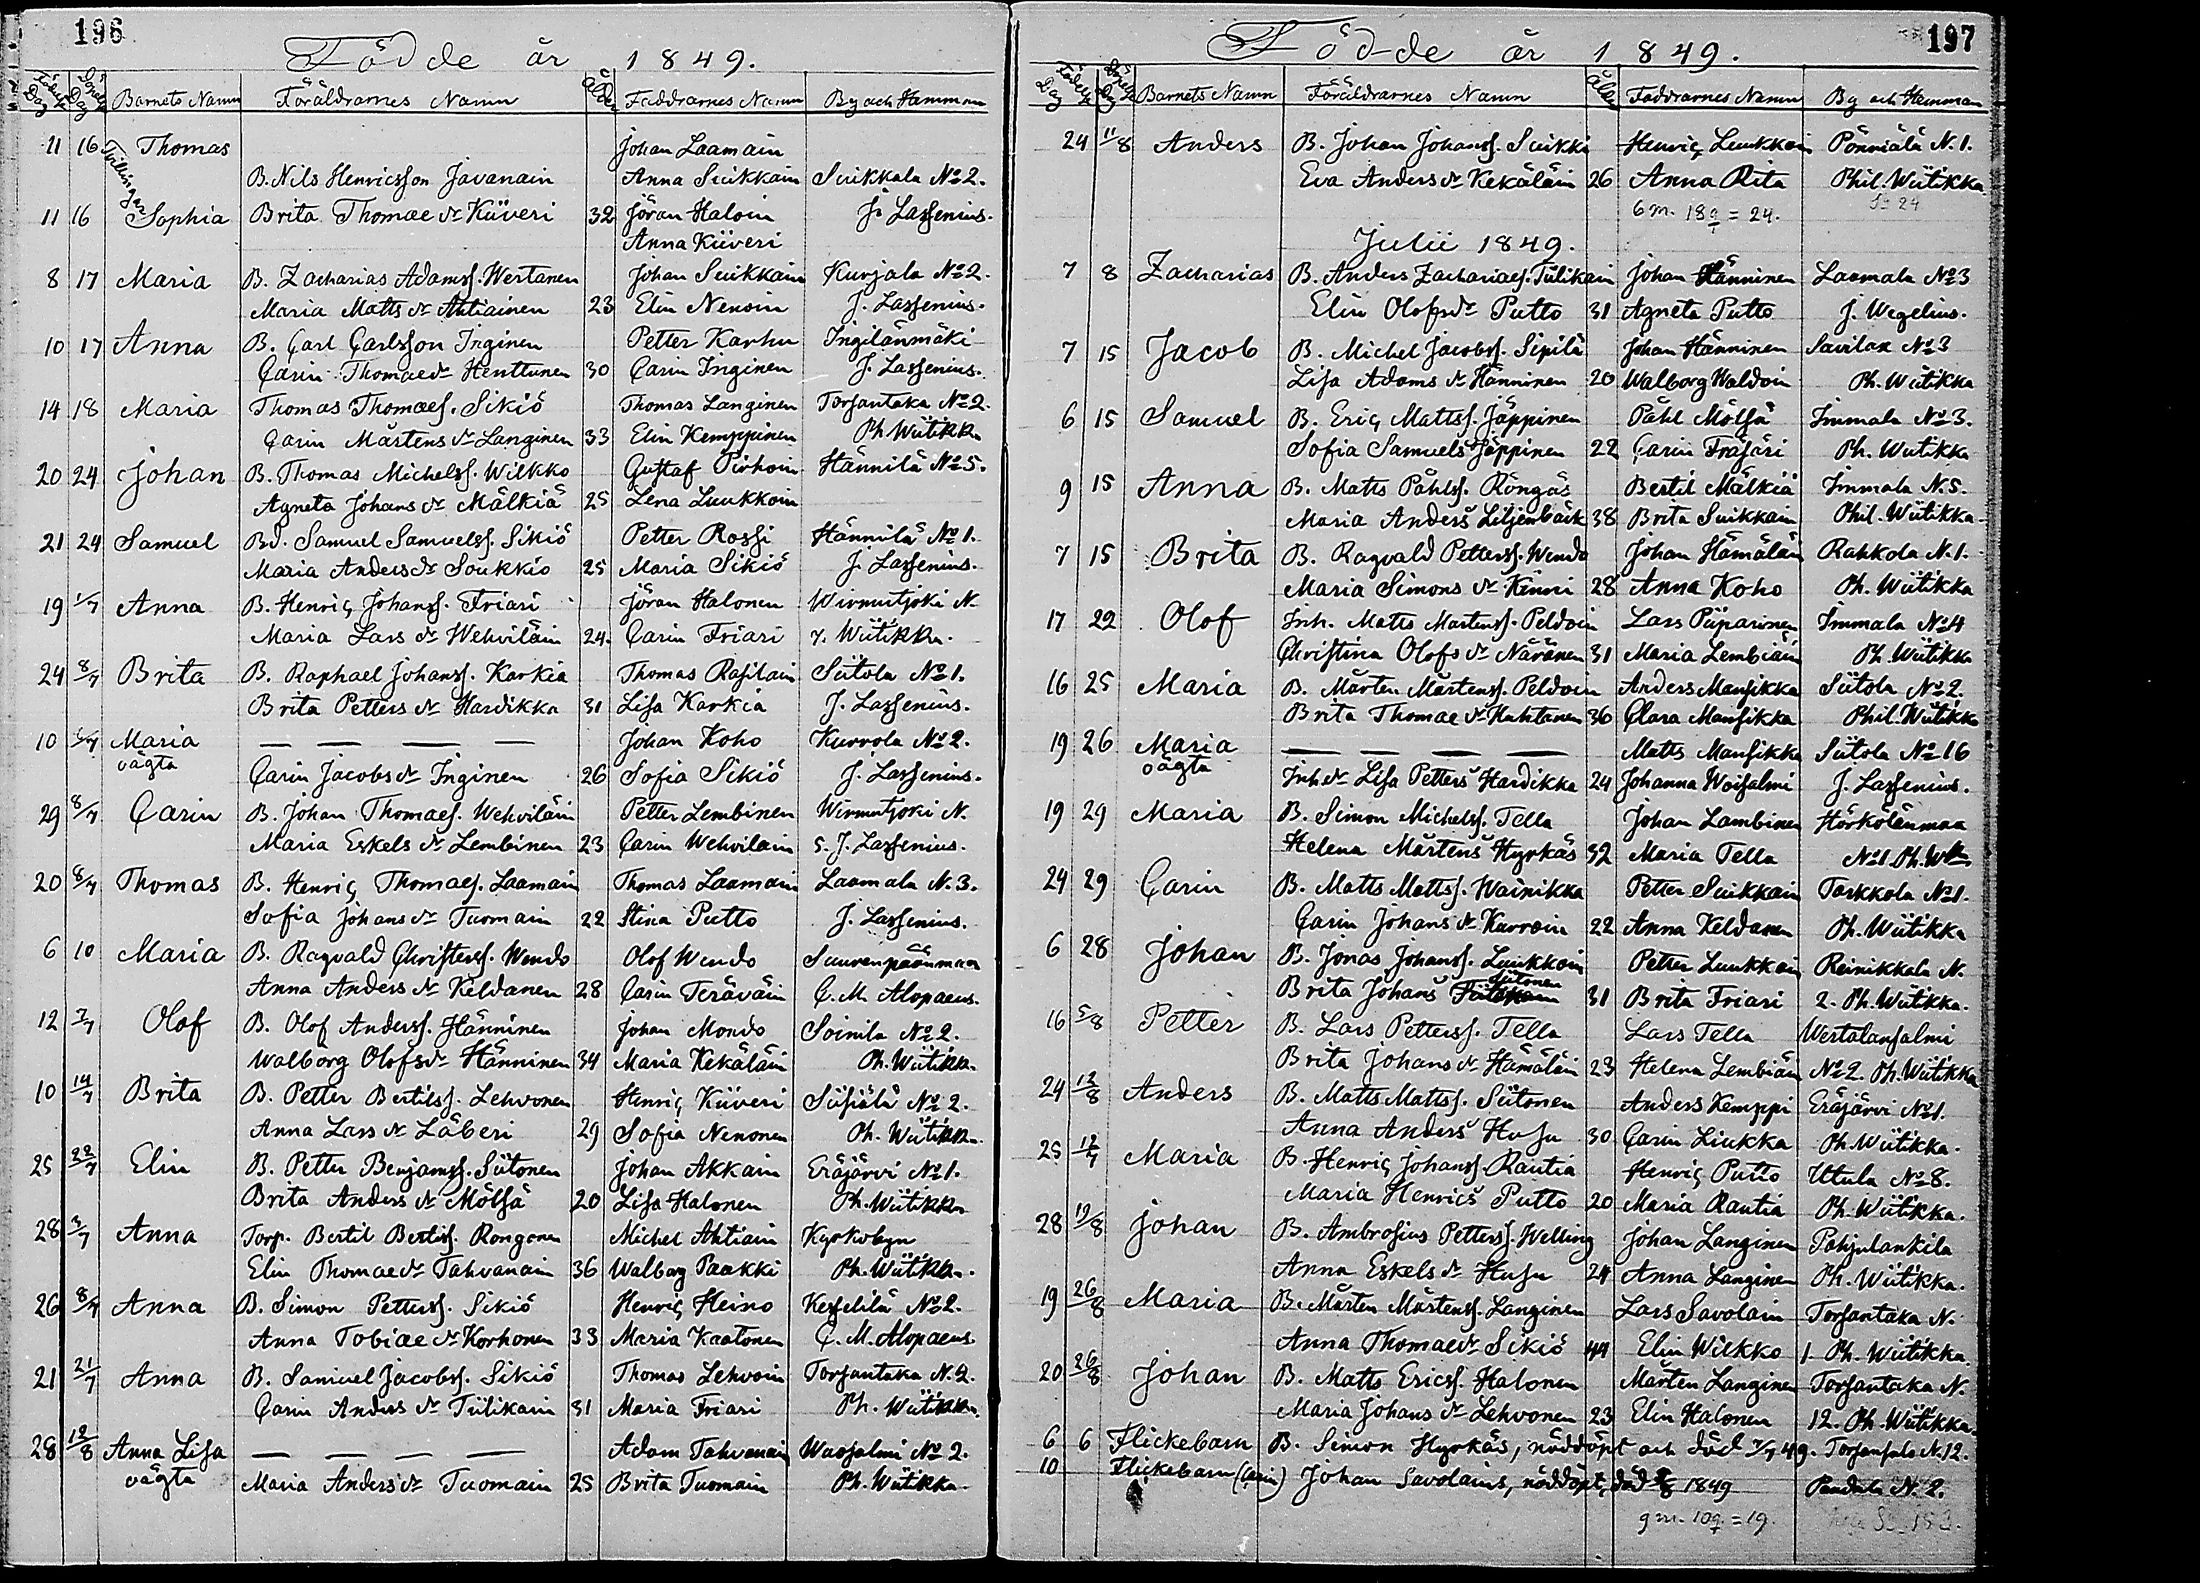 196
Födde år 1849.
Födelse Dag Döpelse Dag Barnets Namn Föräldrarnes Namn Ålder Faddrarnes Namn By och Hemman
11 16 Thomas Johan Laamain
Tvillingar B. Nils Henricsson Javanain Anna Suikkain Suikkala No 2.
11 16 Sophia Brita Thomae dr Kiiveri 32 Jöran Haloin J. Lassenius.
Anna Kiiveri
8 17 Maria B. Zacharias Adamss. Wertanen Johan Suikkain Kurjala No 2.
Maria Matts dr Ahtiainen 23 Elin Nenoin J. Lassenius.
10 17 Anna B. Carl Carlsson Inginen Petter Karhu Ingilänmäki
Carin Thomae dr Henttunen 30 Carin Inginen J. Lassenius.
14 18 Maria Thomas Thomaes. Sikiö Thomas Langinen Torsantaka No 2.
Carin Mårtens dr Langinen 33 Elin Kemppinen Ph Wiitikka
20 24 Johan B. Thomas Michelss. Wilkko Gustaf Pirhoin Hännilä No 5.
Agneta Johans dr Mälkiä 25 Lena Luukkoin
21 24 Samuel Bd. Samuel Samuelss. Sikiö Petter Rossi Hännilä No 1.
Maria Anders dr Soukkio 25 Maria Sikiö J. Lassenius.
19 1/7 Anna B. Henric Johanss. Friari Jöran Halonen Wirmutjoki N.
Maria Lars dr Wehviläin 24. Carin Friari 7. Wiitikka.
24 8/7 Brita B. Raphael Johanss. Karkia Thomas Rasilain Siitola No 1.
Brita Petters dr Hardikka 31 Lisa Karkia J. Lassenius.
10 Maria — — — — Johan Koho Kurvola No 2.
oägta Carin Jacobs dr Inginen 26 Sofia Sikiö J. Lassenius.
29 8/7 Carin B. Johan Thomaes. Wehviläin Petter Lembinen Wirmutjoki N.
Maria Eskels dr Lembinen 23 Carin Wehvilain 5. J. Lassenius.
20 8/7 Thomas B. Henric Thomaes. Laamain Thomas Laamain Laamala N. 3.
Sofia Johans dr Tuomain 22 Stina Putto J. Lassenius.
6 10 Maria B. Ragvald Christerss. Wendo Olof Wendo Suurenpäänmaa
Anna Anders dr Keldanen 28 Carin Teräväin C. M. Alopaeus.
12 7/7 Olof B. Olof Anderss. Hänninen Johan Mondo Soinila No 2.
Walborg Olofs dr Hänninen 34 Maria Kekäläin Ph. Wiitikka.
10 14/7 Brita B. Petter Bertilss. Lehvonen Henric Kiiveri Siisiälä No 2.
Anna Lars dr Läberi 29 Sofia Nenonen Ph. Wiitikka.
25 22/7 Elin B. Petter Benjamss. Siitonen Johan Akkain Eräjärvi No 1.
Brita Anders dr Mölsä 20 Lisa Halonen Ph. Wiitikka
28 3/7 Anna Torp. Bertil Bertils. Rongonen Michel Ahtiain Kyrkobyn
Elin Thomae dr Tahvanain 36 Walborg Paakki Ph. Wiitikka.
26 8/7 Anna B. Simon Petterss. Sikiö Henric Heino Kesselilä No 2.
Anna Tobiae dr Korhonen 33 Maria Kaatonen C. M. Alopaeus.
21 21/7 Anna B. Samuel Jacobss. Sikiö Thomas Lehvoin Torsantaka N. 2.
Carin Anders dr Tiilikain 31 Maria Friari Ph. Wiitikka.
28 12/8 Anna Lisa — — — — Adam Tahvanain Waasalmi No 2.
oägta Maria Anders dr Tuomain 25 Brita Tuomain Ph. Wiitikka.
197
Födde år 1849.
Födelse Dag Döpelse Dag Barnets Namn Föräldrarnes Namn Ålder Faddrarnes Namn By och Hemman
24 11/8 Anders B. Johan Johanss. Suikki Henric Luukkain Pönniälä N. 1.
Eva Anders dr Kekäläin 26 Anna Rita Phil. Wiitikka
6 m. 18 q = 24. Sa 24
Julii 1849.
7 8 Zacharias B. Anders Zachariaes. Tiilikain Johan Hänninen Laamala No 3
Elin Olofs dr Putto 31 Agneta Putto J. Wegelius.
7 15 Jacob B. Michel Jacobss. Sipilä Johan Hänninen Savilax No 3
Lisa Adams dr Hänninen 20 Walborg Waldoin Ph. Wiitikka
6 15 Samuel B. Eric Mattss. Jäppinen Påhl Mölsä Immala No 3.
Sofia Samuels Jäppinen 22 Carin Fräjäri Ph. Wiitikka
9 15 Anna B. Matts Påhlss. Röngäs Bertil Mälkiä Immala N. 5.
Maria Anders Liljenbäck 38 Brita Suikkain Phil. Wiitikka.
7 15 Brita B. Ragvald Petterss. Wendo Johan Hämäläin Rahkola N. 1.
Maria Simons dr Kinni 28 Anna Koho Ph. Wiitikka
17 22 Olof Inh. Matts Martenss. Peldoin Lars Piiparinen Immala No 4
Christina Olofs dr Näränen 31 Maria Lembiäin Ph. Wiitikka
16 25 Maria B. Mårten Mårtenss. Peldoin Anders Mansikka Siitola No 2.
Brita Thomae dr Huhtanen 36 Clara Mansikka Phil. Wiitikka
19 26 Maria — — — — Matts Mansikka Siitola No 16
oägta Inh. dr Lisa Petters Hardikka 24 Johanna Woisalmi J. Lassenius.
19 29 Maria B. Simon Michelss. Tella Johan Lambinen Hörkölänmaa
Helena Mårtens Hyrkäs 32 Maria Tella No 1 Ph. Wtk
24 29 Carin B. Matts Mattss. Wainikka Petter Suikkain Tarkkola No 1.
Carin Johans dr Kurvoin 22 Anna Keldanen Ph. Wiitikka
6 28 Johan B. Jonas Johanss. Luukkoin Petter Luukkoin Reinikkala N.
Brita Johans Siitonen 31 Brita Friari 2. Ph. Wiitikka.
16 5/8 Petter B. Lars Petterss. Tella Lars Tella Wertalansalmi
Brita Johans dr Hämäläin 23 Helena Lembiäin No 2. Ph. Wiitikka
24 12/8 Anders B. Matts Mattss. Siitonen Anders Kemppi Eräjärvi No 1.
Anna Anders Husu 30 Carin Liukka Ph. Wiitikka.
25 12/7 Maria B. Henric Johanss. Rautia Henric Putto Utula No 8.
Maria Henrics Putto 20 Maria Rautia Ph. Wiitikka.
28 19/8 Johan B. Ambrosius Petterss. Welling Johan Langinen Pohjulankila
Anna Eskels dr Husu 24 Anna Langinen Ph. Wiitikka.
19 26/8 Maria B. Mårten Mårtenss. Langinen Lars Savolain Torsantaka N.
Anna Thomae dr Sikiö 44 Elin Wilkko 1 Ph. Wiitikka.
20 26/8 Johan B. Matts Ericss. Halonen Mårten Langinen Torsantaka N.
Maria Johans dr Lehvonen 23 Elin Halonen 12. Ph. Wiitikka.
6 6 Flickebarn B. Simon Hyrkäs, nöddöpt och död 7/7 49. Torsansalo N. 12.
10 Flickebarn (Carin) Johan Savolains, nöddöpt, död 1849 Pundula N. 2.
9 m. 10 q = 19.